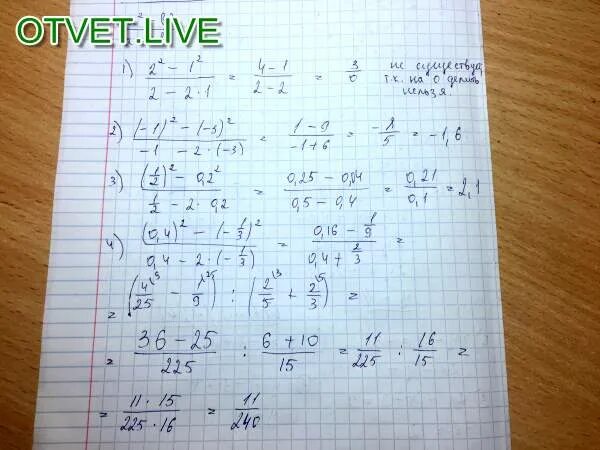 OTVET.LIVE
1) (2² - 1²)/(2 - 2·1) = (4 - 1)/(2 - 2) = 3/0 не существует, т.к. на 0 делить нельзя.
2) ((-1)² - (-3)²)/(-1 - 2·(-3)) = (1 - 9)/(-1 + 6) = -8/5 = -1,6
3) ((1/2)² - 0,2²)/(1/2 - 2·0,2) = (0,25 - 0,04)/(0,5 - 0,4) = 0,21/0,1 = 2,1
4) ((0,4)² - (-1/3)²)/(0,4 - 2·(-1/3)) = (0,16 - 1/9)/(0,4 + 2/3) =
= (4/25 - 1/9) : (2/5 + 2/3) =
= (36 - 25)/225 : (6 + 10)/15 = 11/225 : 16/15 =
= (11·15)/(225·16) = 11/240